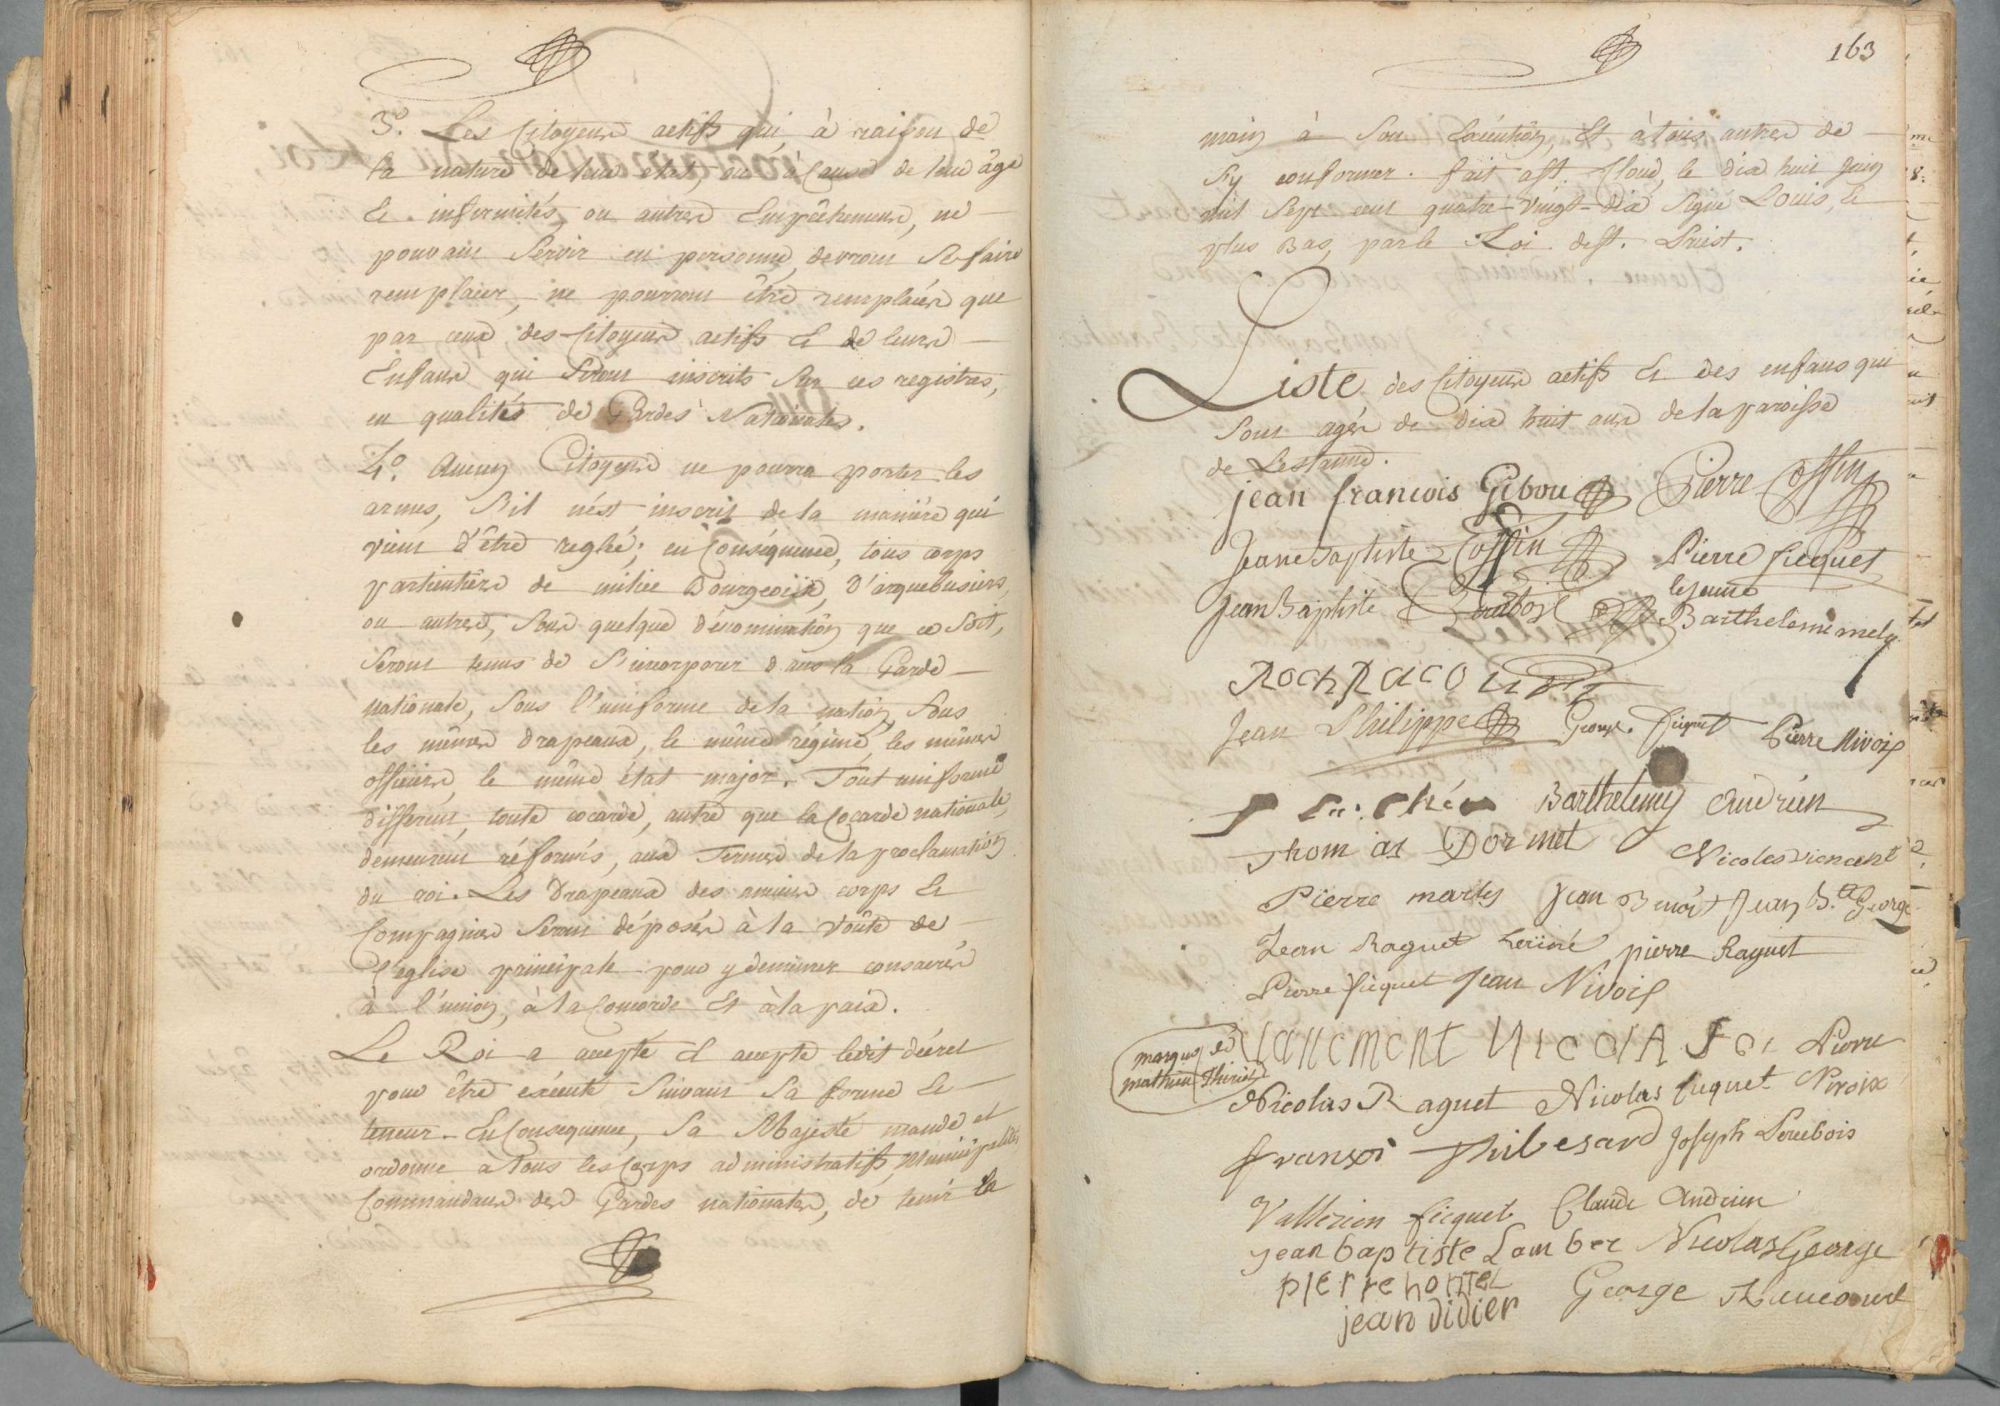 3º. Les Citoyens actifs qui à raison de
la nature de leur état, ou à cause de leur âge
et infirmités, ou autres Empêchemens, ne
pouvant Servir en personne, devront Se faire
remplacer, ne pourront être remplacés que
par ceux des Citoyens actifs et de leurs
Enfans qui Seront inscrits Sur ces registres,
en qualités de Gardes Nationales.
4º. Aucun Citoyen ne pourra porter les
armes, S'il n'est inscrit de la manière qui
vient d'être reglée; en Conséquence, tous corps
particuliers de milice Bourgeoise, d'arquebusiers,
ou autres, Sous quelque dénomination que ce Soit,
Seront tenus de S'incorporer dans la Garde
nationale, Sous l'uniforme de la nation, Sous
les mêmes Drapeaux, le même régime, les mêmes
officiers, le même état major. Tout uniforme
différent, toute cocarde, autre que la Cocarde nationale,
demeurent réformés, aux Termes de la proclamation
du roi. Les Drapeaux des anciens corps et
Compagnies Seront déposés à la voûte de
l'église principale pour y demeurer consacrés
à l'union, à la Concorde et à la paix.
Le Roi a accepté et accepte ledit décret
pour être exécuté Suivant Sa forme et
teneur. En Conséquence, Sa Majesté mande et
ordonne a tous les Corps administratifs, Municipalités
Commandans des Gardes nationales, de tenir la
163
main à Son Exécution, Et à tous autres de
S'y conformer. fait à St. Cloud, le dix huit Juin
mil Sept cent quatre-vingt-dix Signé Louis, et
plus Bas, par le Roi. de St. Priest.
Liste des Citoyens actifs et des enfans qui
Sont agés de dix huit ans de la paroisse
de
jean francois Gibou Pierre Coffin
Jean Baptiste Coffin Pierre ficquet
le jeune
Jean Baptiste Barthelemi
Roch Raco
Jean Philippe George ficquet Pierre Nivoix
Barthelemy Andrien
Thomas Dormet Nicolas viencent
Pierre Jean Benoit Jean Bte George
Jean Raguet pierre Raguet
Pierre ficquet Jean Nivoix
marque de
mathieu Thiriet
Vanement Nicola Pierre
Nicolas Raguet Nicolas ficquet Nivoix
fransoi Thibesard Joseph
Vallerien ficquet Claude Andrien
jean baptiste Lamber Nicolas George
pierre George
jean didier